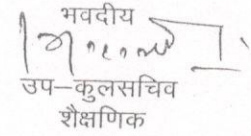 भवदीय
उप–कुलसचिव
शैक्षणिक